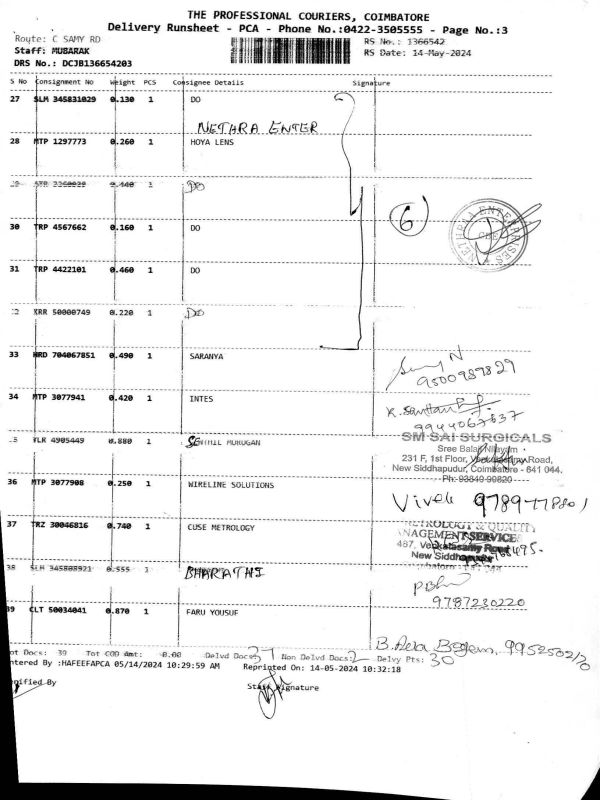 THE PROFESSIONAL COURIERS, COIMBATORE
Delivery Runsheet - PCA - Phone No.:0422-3505555 - Page No.:3
Route: C SAMY RD RS No.: 1366542
Staff: MUBARAK RS Date: 14-May-2024
DRS No.: DCJB136654203
S No Consignment No Weight PCS Consignee Details Signature
27 SLM 345831029 0.130 1 DO
NETHRA ENTER
28 MTP 1297773 0.260 1 HOYA LENS
1 DO
6
NETHRAA ENTERPRISES
CBE
30 TRP 4567662 0.160 1 DO
31 TRP 4422101 0.460 1 DO
XRR 50000749 0.220 1 DO
33 HRD 704067851 0.490 1 SARANYA
9500989829
34 MTP 3077941 0.420 1 INTES
9944067537
VLR 4905449 0.880 1 SENTHIL MURUGAN
SM SAI SURGICALS
Sree Balaji Nilayam
231 F, 1st Floor, Road,
New Siddhapudur, Coimbatore - 641 044.
Ph: 93840 90820
36 MTP 3077908 0.250 1 WIRELINE SOLUTIONS
Vivek
37 TRZ 30046816 0.740 1 CUSE METROLOGY
METROLOGY & QUALITY
MANAGEMENT SERVICES
487, Venkatasamy Road
New Siddhapudur
38 SLH 345808921 0.555 1 BHARATHI
9787230220
39 CLT 50034041 0.870 1 FARU YOUSUF
9952502120
Tot Docs: 39 Tot COD Amt: 0.00 Delvd Docs: 37 Non Delvd Docs: 2 Delvy Pts: 30
Entered By :HAFEEFAPCA 05/14/2024 10:29:59 AM Reprinted On: 14-05-2024 10:32:18
Verified By Staff Signature